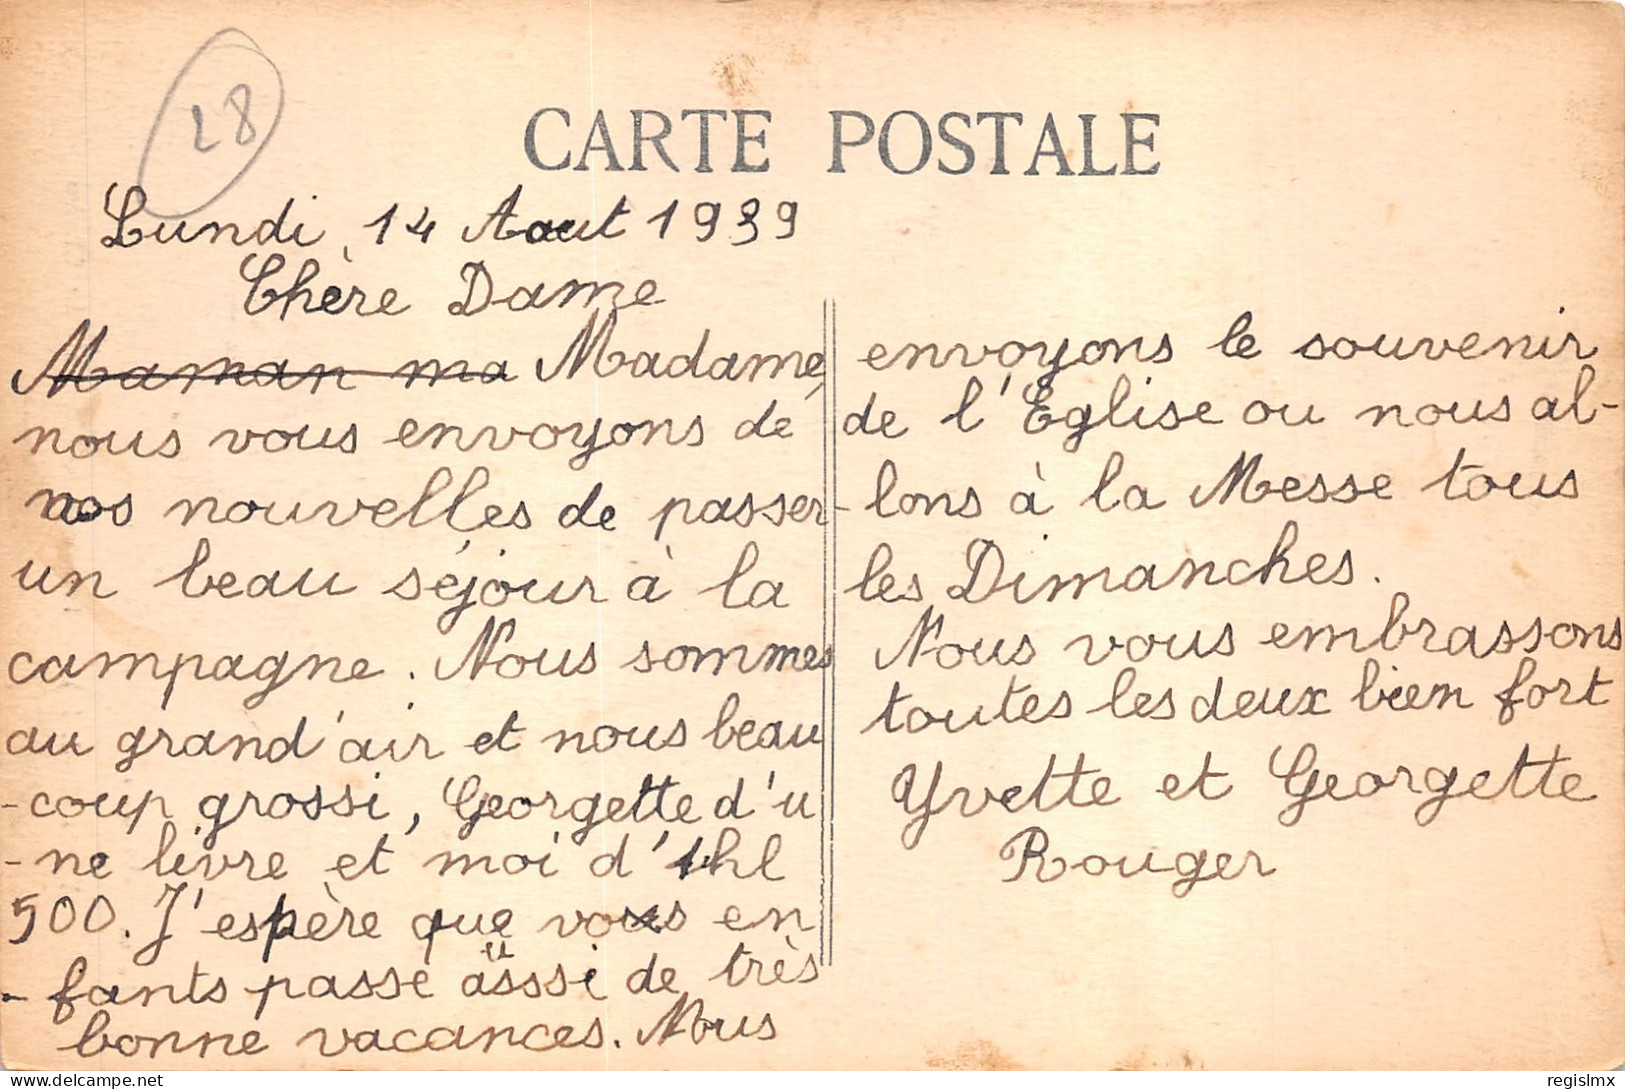 28
CARTE POSTALE
Lundi 14 Aout 1939
Chère Dame
Maman ma Madame,
nous vous envoyons de
nos nouvelles de passer
un beau séjour à la
campagne. Nous sommes
au grand'air et nous beau
-coup grossi, Georgette d'u
-ne livre et moi d'1hl
500. J'espère que vous en
-fants passe aussi de très
bonne vacances. Nous
envoyons le souvenir
de l'Eglise ou nous al-
-lons à la Messe tous
les Dimanches.
Nous vous embrassons
toutes les deux bien fort
Yvette et Georgette
Rouger
delcampe.net
regislmx